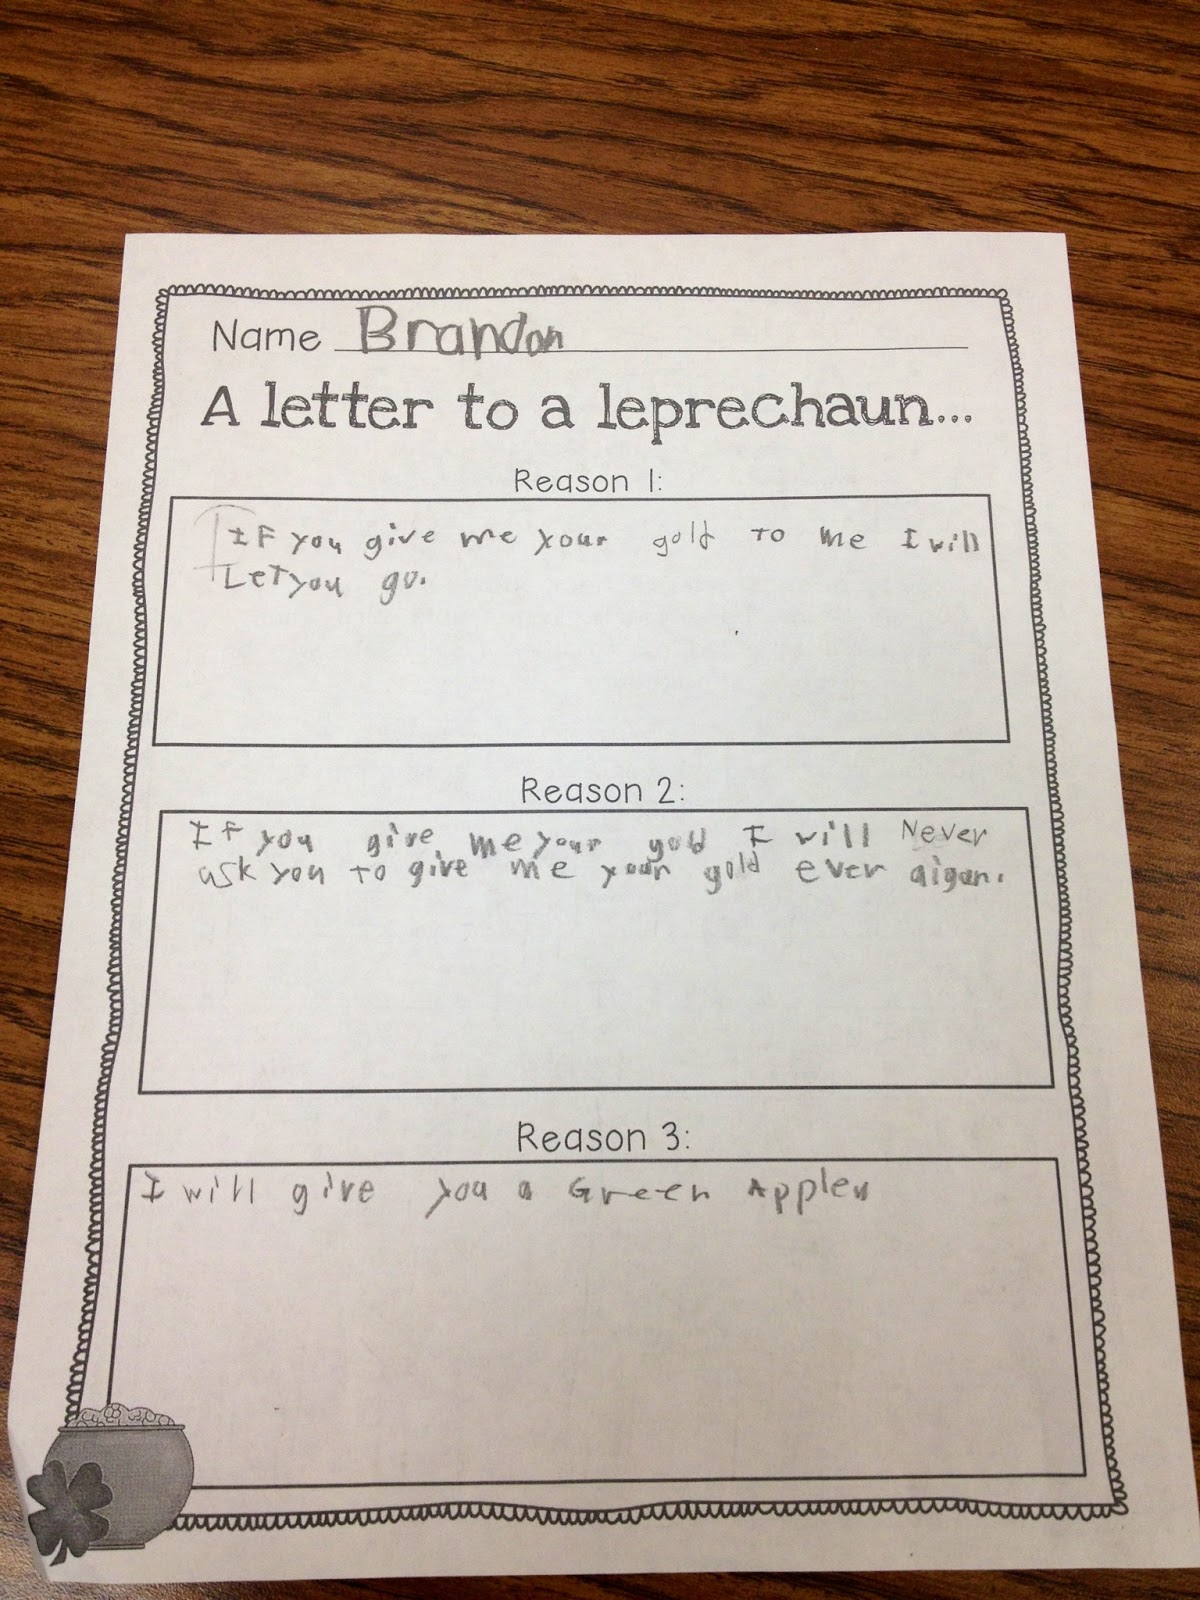 Name Brandon
A letter to a leprechaun...
Reason 1:
IF you give me your gold to me I will
Let you go.
Reason 2:
If you give me your gold I will Never
ask you to give me your gold ever aigan.
Reason 3:
I will give you a Green Apple